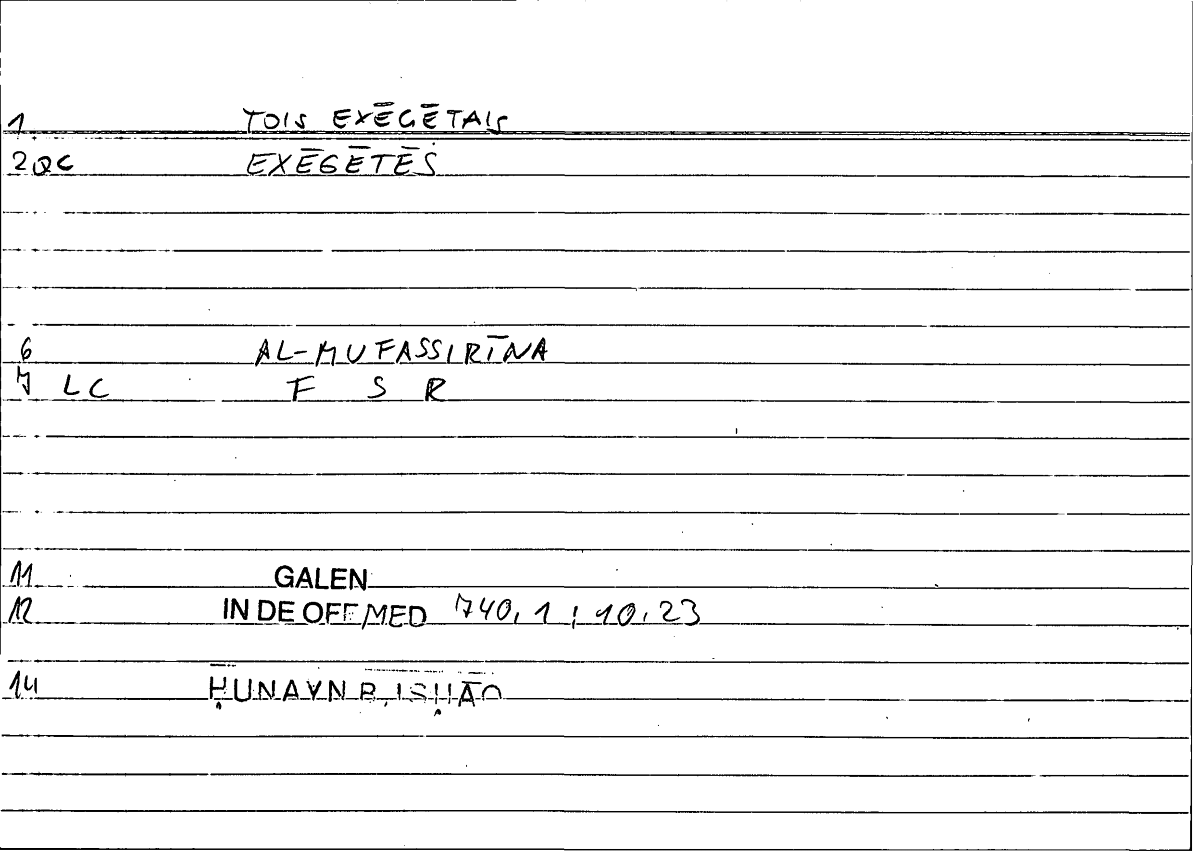 1 TOIS EXĒGĒTAIS
2 QC EXĒGĒTĒS
6 AL-MUFASSIRĪNA
7 LC F S R
11 GALEN
12 IN DE OFF MED 740,1 ; 10,23
14 ḤUNAYN B. ISḤĀQ